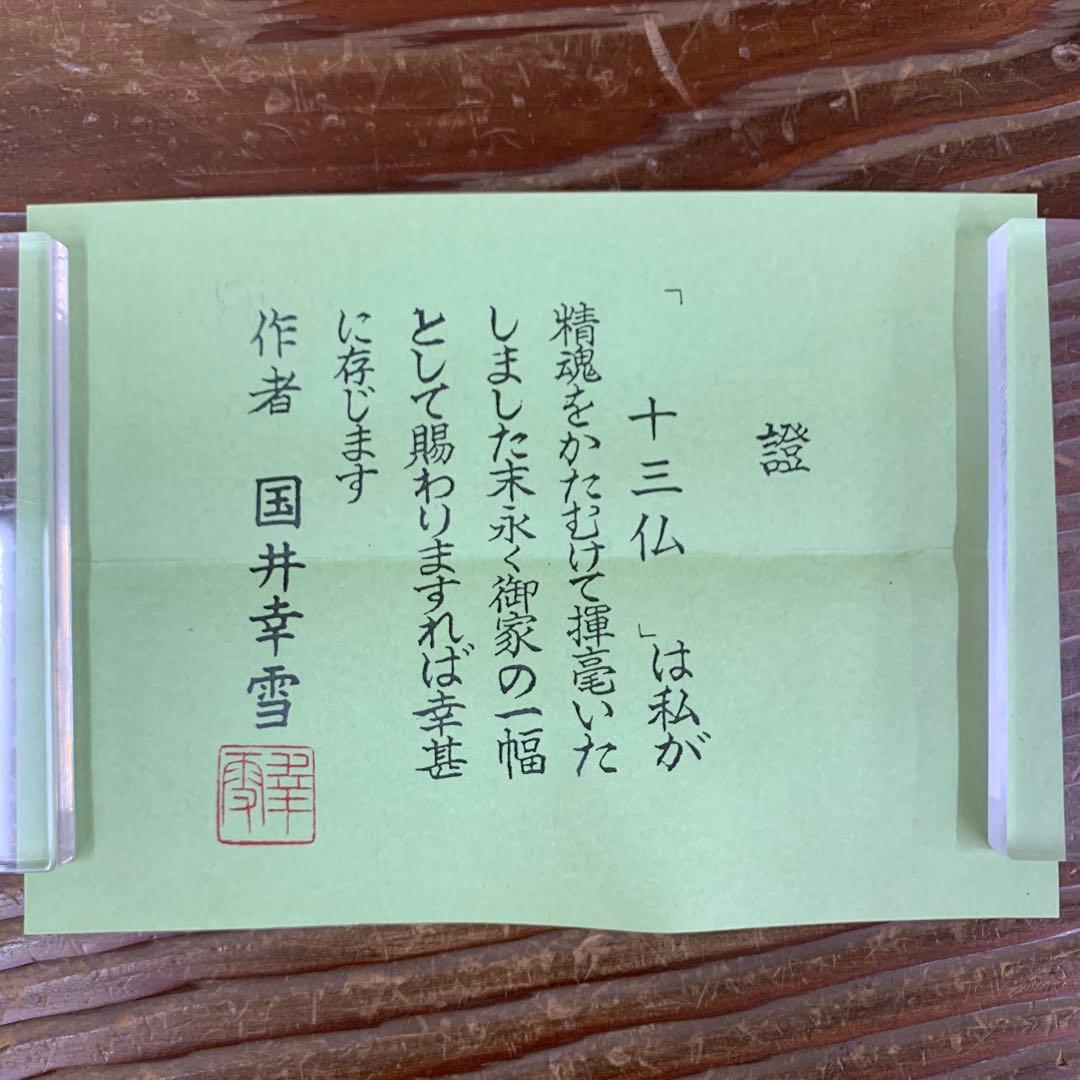 證
「十三仏」は私が
精魂をかたむけて揮毫いた
しました末永く御家の一幅
として賜わりますれば幸甚
に存じます
作者 国井幸雪
幸雪